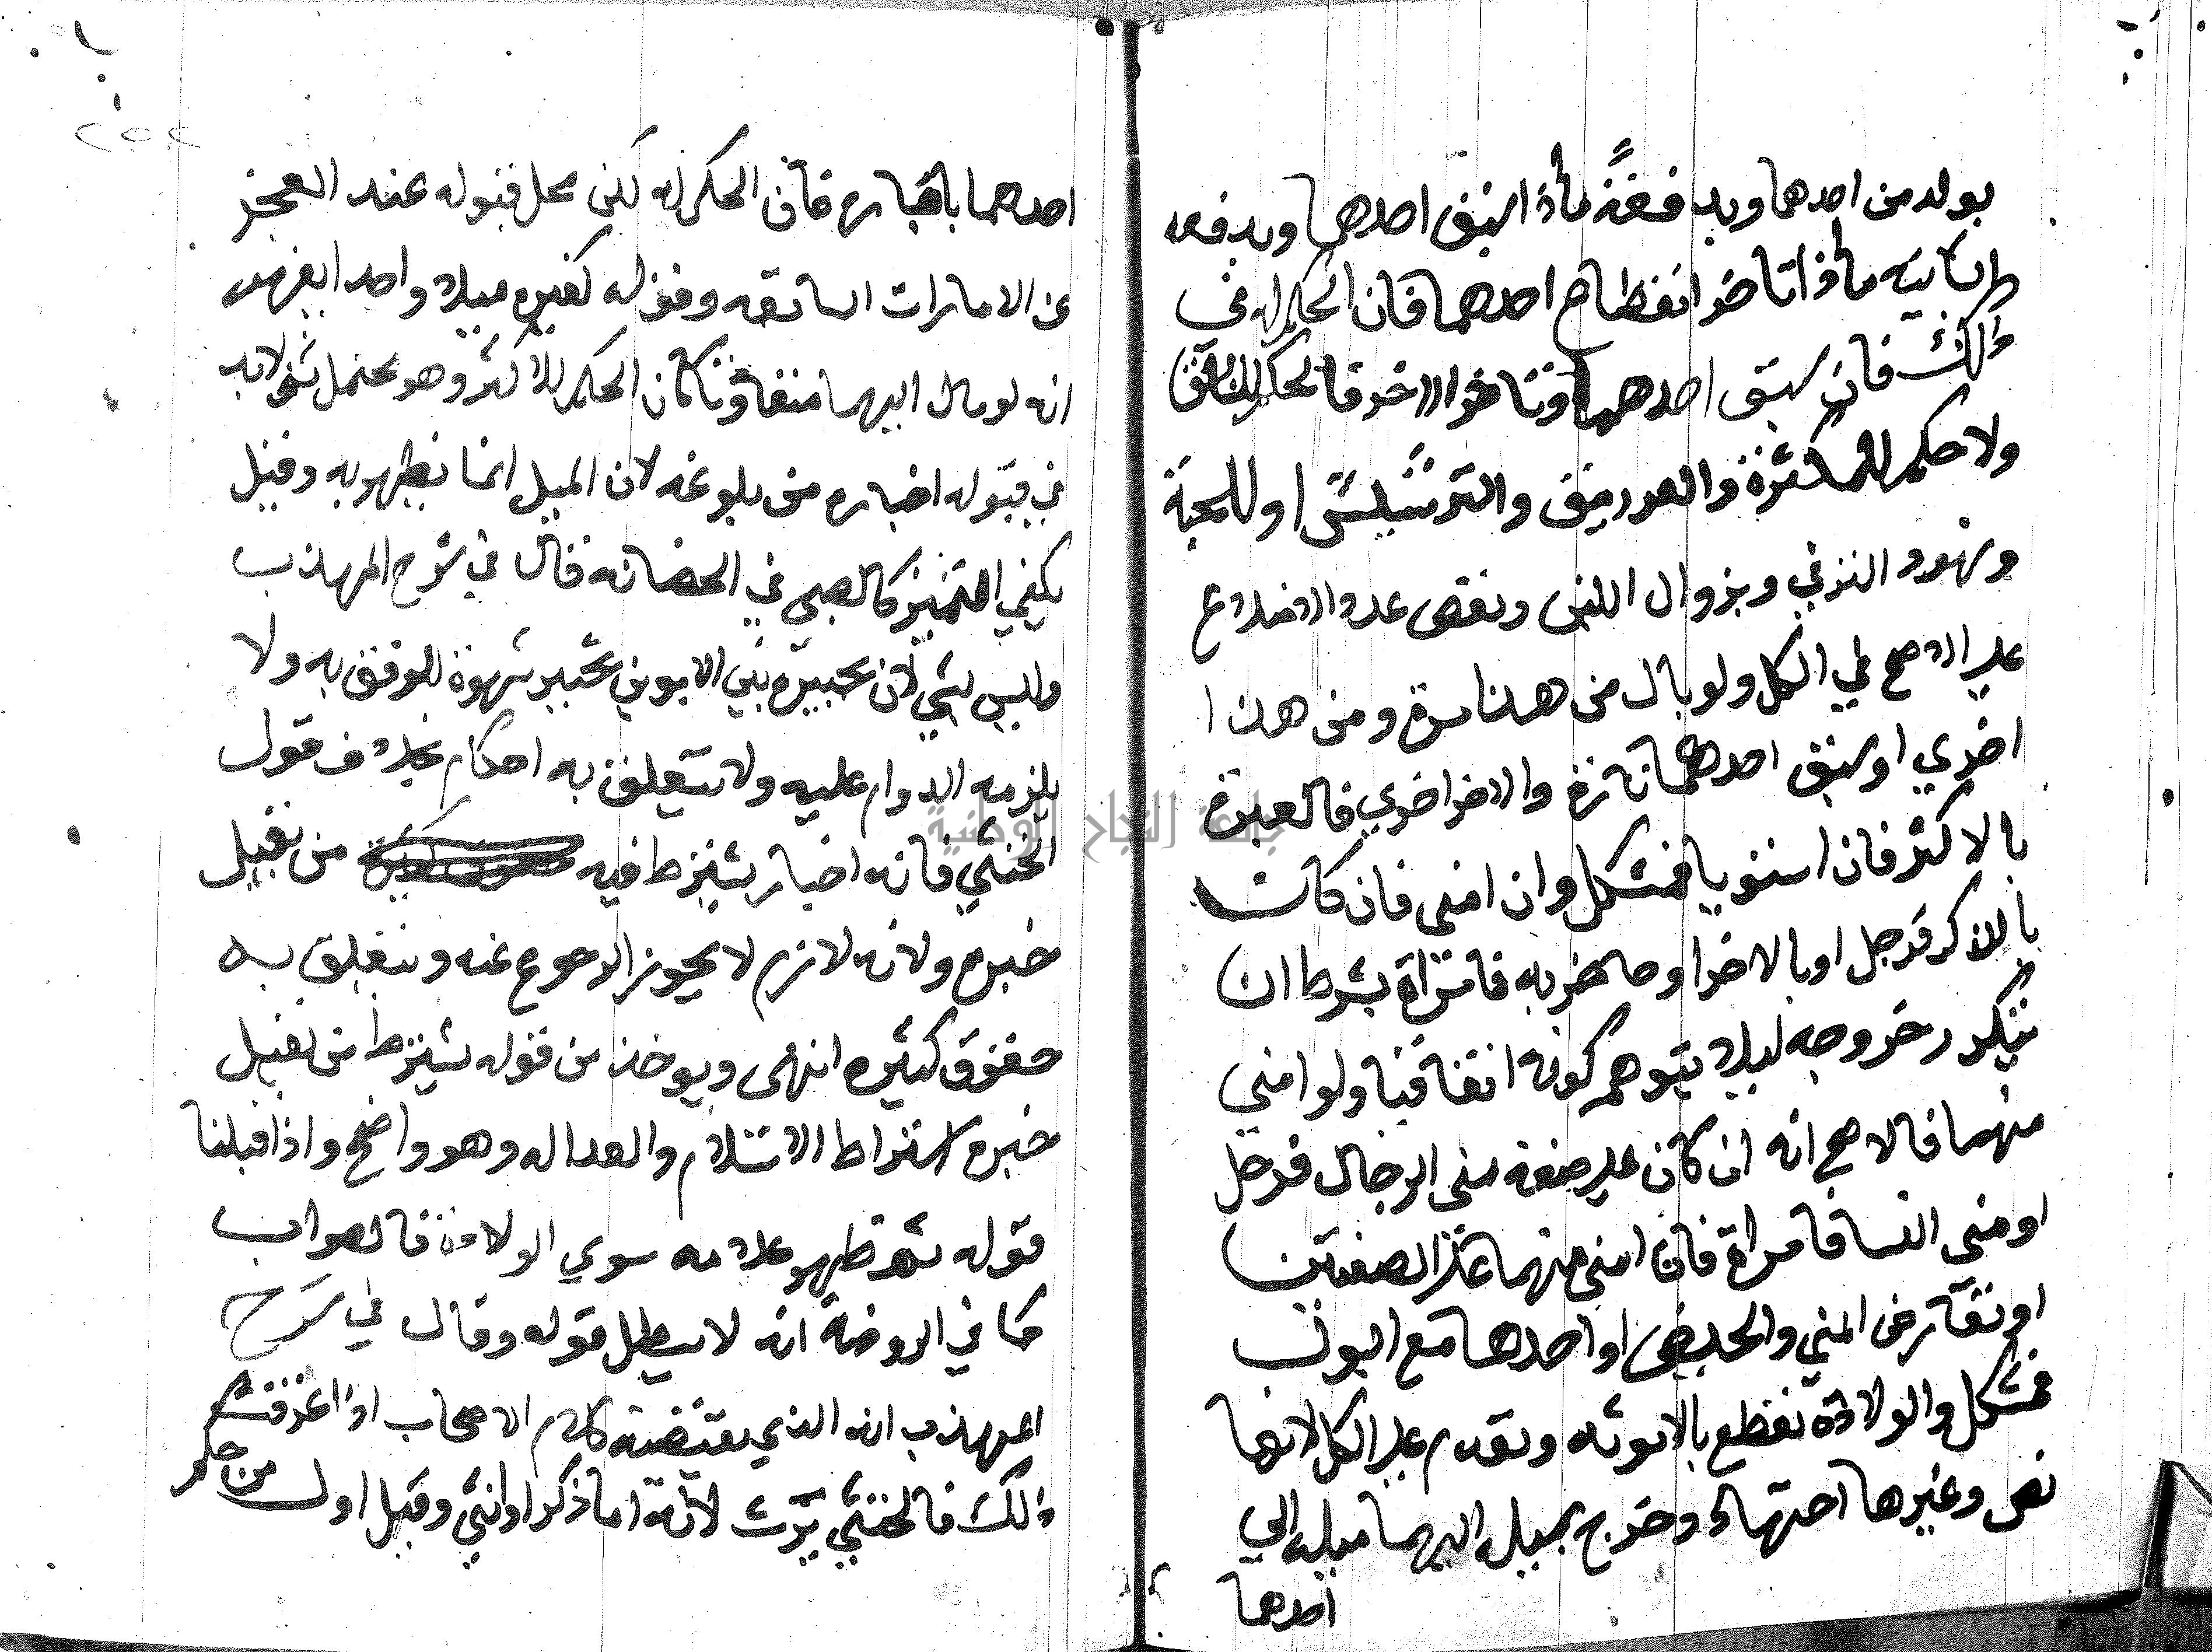 يولد من احدهما ويدفعة فاذا اتفق احدهما ويدفعه
ثانيه فاذا تاخر انقطاع احدهما فان الحكم له في
ذلك فان سبق احدهما وتاخر الاخر فالحكم للسابق
ولا حكم للكثرة والعدد والتزريق والترشيش او للحية
ونهود الثدي وبنزوال اللبن ونقص عدد الاضلاع
علي الاصح في الكل ولو بال من هذا مرة ومن هذا
اخري او سبق احدهما تارة والاخر اخري فالعبرة
بالاكثر فان استويا فمشكل وان امني فان كان
بالذكر فرجل او بالاخر او حاض به فامراة بشرط ان
يتكرر خروجه ليلا يتوهم كونه اتفاقيا ولو امني
منهما فالاصح انه ان كان علي صفة مني الرجال فرجل
او مني النسا فامراة فان امني منهما علي الصفتين
او تعارض المني والحيض او احدهما مع البول
فمشكل والولادة تقطع بالانوثه وتقدم علي الكل لانها
نص وغيرها اجتهاد وخرج بميل اليهما ميله الي
احدهما
احدهما باخباره فان الحكم له لكن محل قبوله عند العجز
عن الامارات السابقه وقوله كغيره ميلا واحدا يفهم
انه لو مال اليهما متفاوتا كان الحكم للاكثر وهو محتمل ثم لا بد
في قبوله اخباره من بلوغه لان الميل انما يظهر به وقيل
يكفي التمييز كالصبي في الحضانه قال في شرح المهذب
وليس بشي لان تخييره بين الابوين تخيير شهوة للرفق به ولا
يلزمه الدوام عليه ولا يتعلق به احكام بخلاف قول
الخنثي فانه اخبار يشترط فيه من يقبل
خبره ولانه لازم لا يجوز الرجوع عنه ويتعلق به
حقوق كثيره انتهي ويوخذ من قوله يشترط من يقبل
خبره اشتراط الاسلام والعداله وهو واضح واذا قبلنا
قوله ثم ظهر علامه سوي الولادة فالصواب
كما في الروضة انه لا يبطل قوله وقال في شرح
المهذب انه الذي يقتضيه كلام الاصحاب اذا عرفت
ذلك فالخنثي يرث لانه اما ذكر او انثي وقيل اول من حكم
جامعة النجاح الوطنية